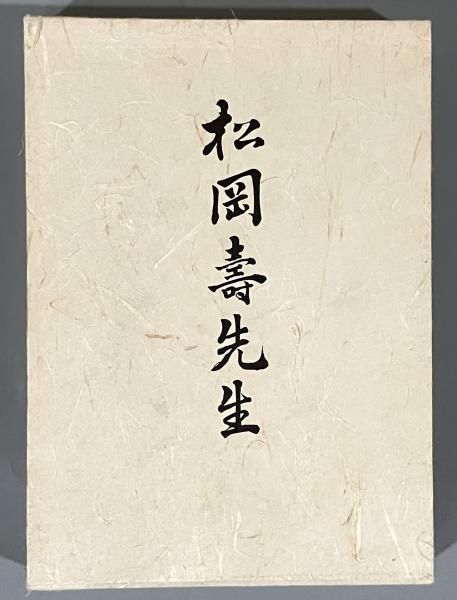 松岡壽先生